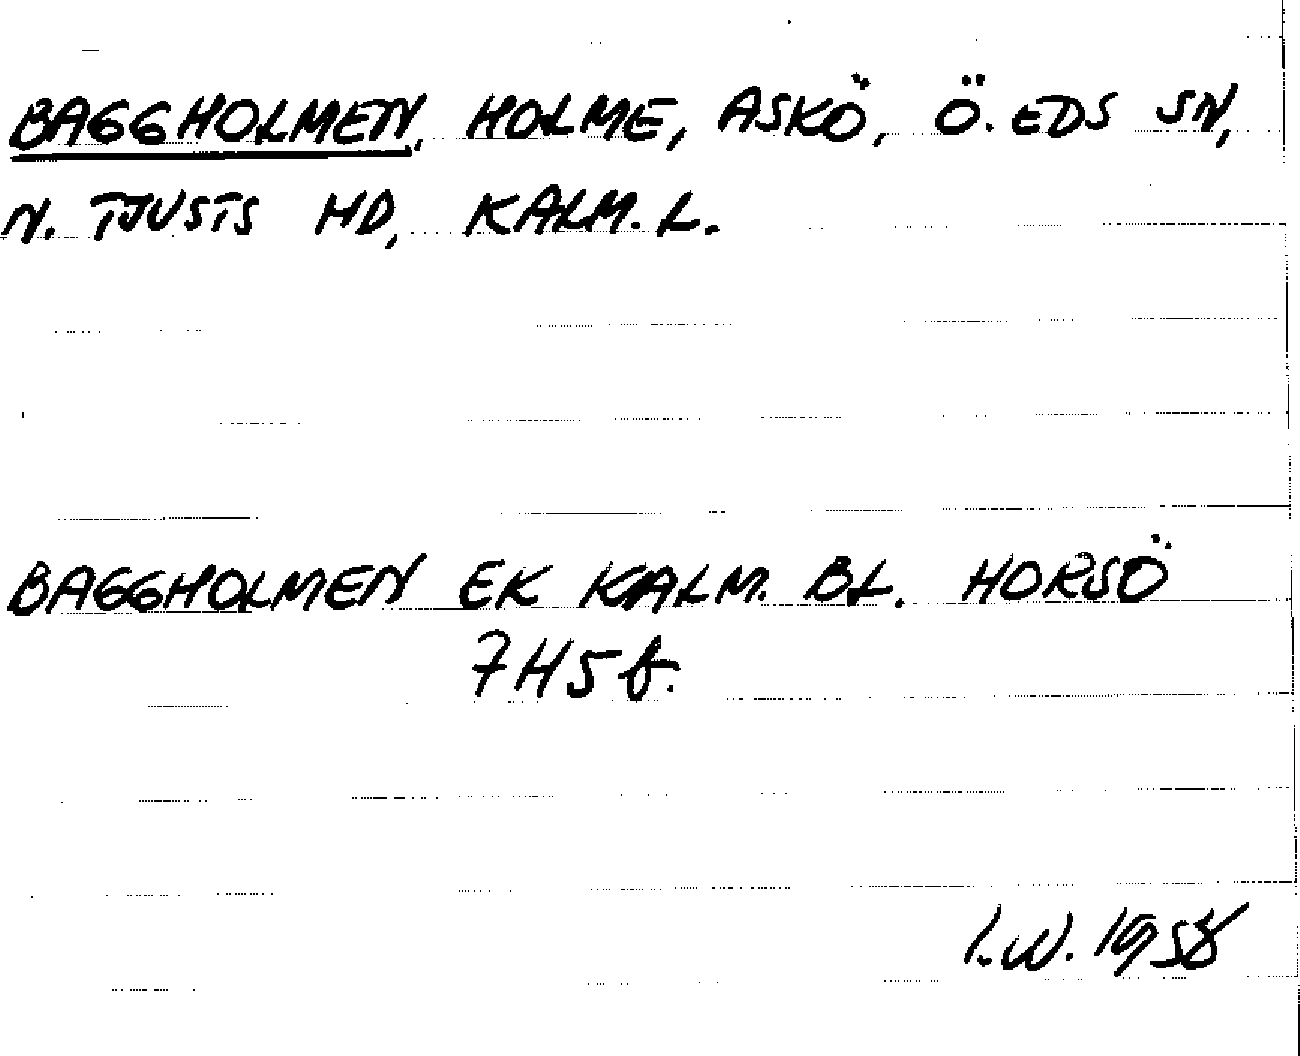 BAGGHOLMEN, HOLME, ASKÖ, Ö. EDS SN,
N. TJUSTS HD, KALM. L.
BAGGHOLMEN EK KALM. BL. HORSÖ
7H5f.
I.W. 1958